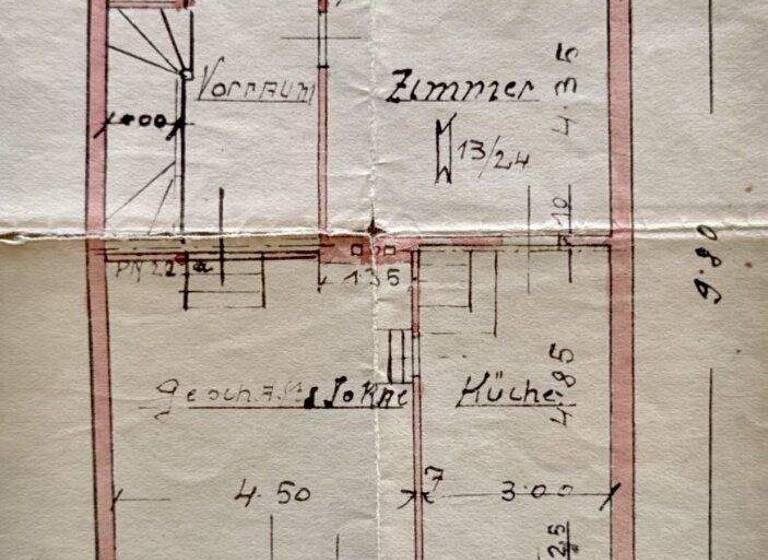 Vorraum
Zimmer
4.35
1.00
13/24
10
9.80
PN 22
1.35
Geschäftslokal
Küche
4.85
4.50
7
3.00
25